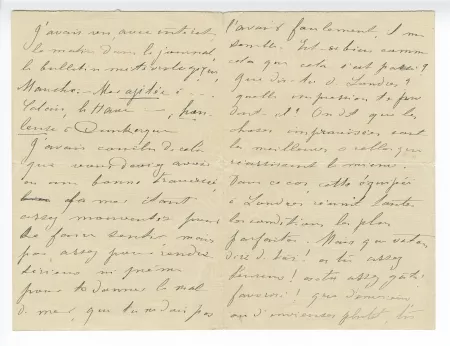 J'avais vu, avec intérêt
le matin dans le journal
le bulletin météorologique
Manche. Mer agitée à
Calais, le Havre, hou
leuse à Dunkerque
J'avais conclu de cela
que vous deviez avoir
eu une bonne traversée
la mer étant
assez mouvante pour
se faire sentir mais
pas assez pour rendre
sérieux ni même
pour te donner le mal
de mer, que tu ne dois pas
l'avoir seulement,
Est-ce bien comme
cela que cela s'est passé?
Que dis-tu de Londres?
quelle impression te
On dit que les
choses improvisées sont
les meilleures
réussissent le même.
Dans ce cas, cette équipée
à Londres réunit toutes
les conditions les plus
parfaites. Mais que vas-tu
dire de
es tu assez gâtée!
favorisé! que
ou d'envieuses plutôt, tu